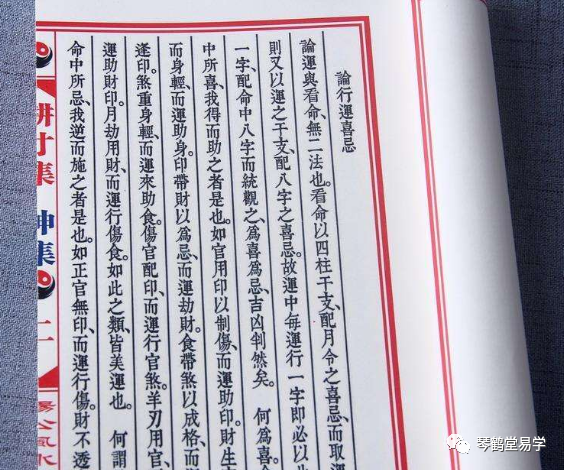 論行運喜忌
論運與看命、無二法也。看命以四柱干支、配月令之喜忌、而取運
則又以運之干支、配八字之喜忌。故運中每運行一字、即必以此
一字、配命中八字而統觀之、為喜為忌、吉凶判然矣。 何為喜、
中所喜、我得而助之者是也。如官用印以制傷、而運助印。財生
而身輕、而運助身。印帶財以為忌、而運劫財。食帶煞以成格、而
逢印、煞重身輕、而運來助食。傷官配印、而運行官煞。羊刃用官、
運助財印。月劫用財、而運行傷食。如此之類、皆美運也。 何謂
命中所忌、我逆而施之者是也。如正官無印、而運行傷。財不透
集
集
二
琴鹤堂易学